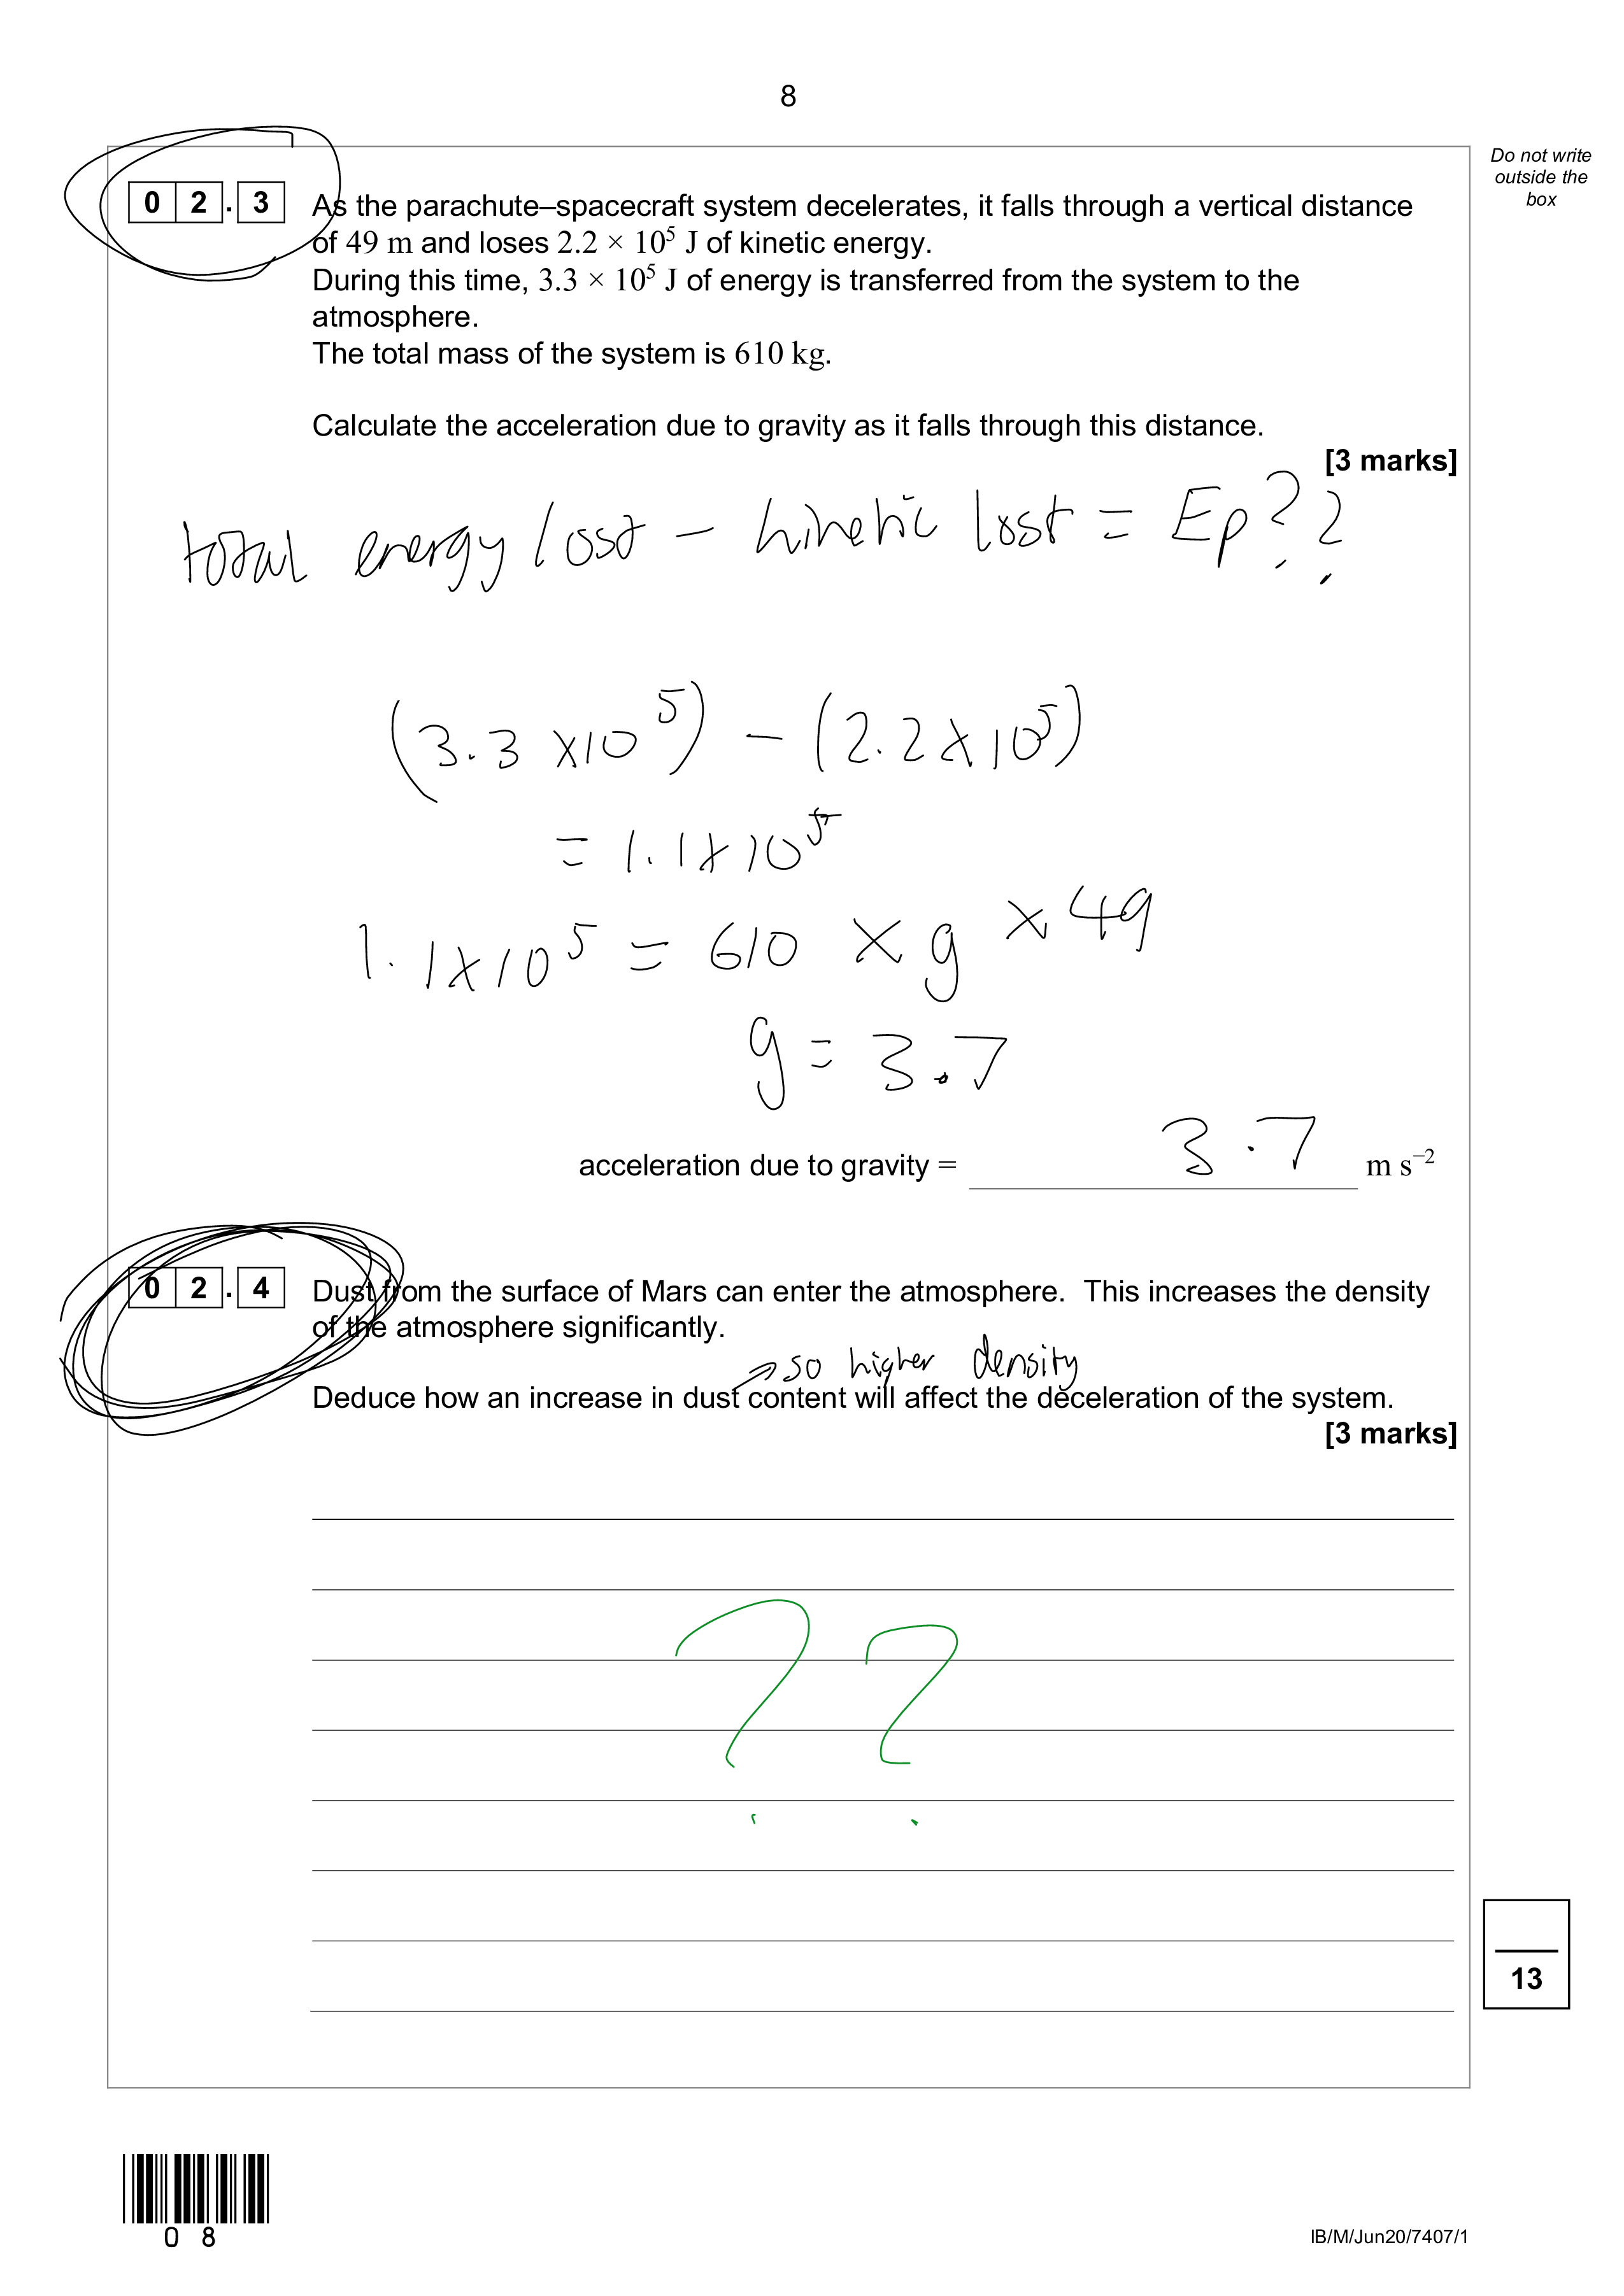 8
Do not write
outside the
box
0 2 . 3 As the parachute–spacecraft system decelerates, it falls through a vertical distance
of 49 m and loses 2.2 × 10⁵ J of kinetic energy.
During this time, 3.3 × 10⁵ J of energy is transferred from the system to the
atmosphere.
The total mass of the system is 610 kg.
Calculate the acceleration due to gravity as it falls through this distance.
[3 marks]
total energy lost – kinetic lost = Ep??
(3.3 ×10⁵) – (2.2×10⁵)
= 1.1×10⁵
1.1×10⁵ = 610 × g × 49
g = 3.7
acceleration due to gravity = 3.7 m s⁻²
0 2 . 4 Dust from the surface of Mars can enter the atmosphere. This increases the density
of the atmosphere significantly.
→ so higher density
Deduce how an increase in dust content will affect the deceleration of the system.
[3 marks]
??
13
0 8
IB/M/Jun20/7407/1